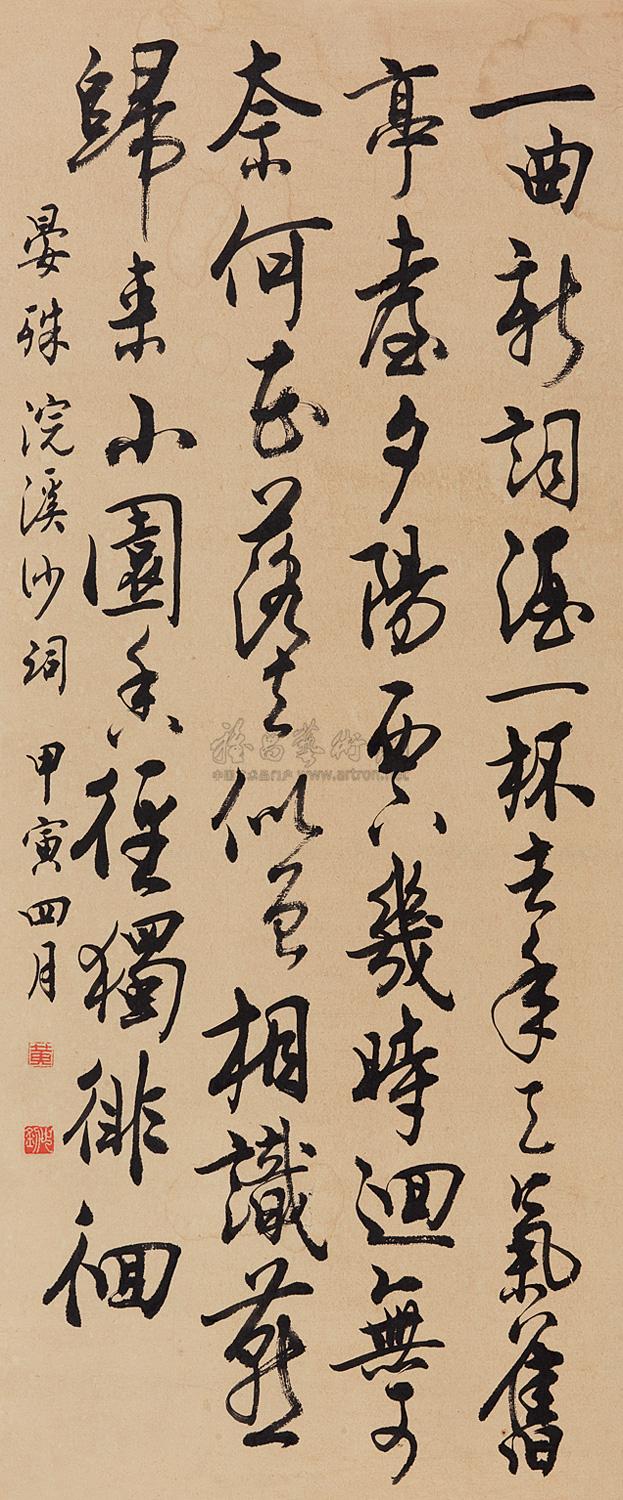 一曲新詞酒一杯去年天氣舊
亭臺夕陽西下幾時迴無可
奈何花落去似曾相識燕
歸來小園香徑獨徘徊
晏殊浣溪沙詞 甲寅四月
黃
雅昌藝術
中国艺术品门户 www.artron.net